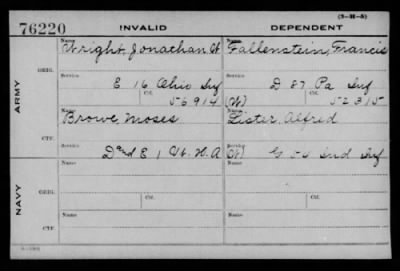 (3-81-8)
76220 INVALID DEPENDENT
Name Name
Wright, Jonachan W Fallenstein, Francis
ORIG.
Service Service
E 16 Ohio Inf D 87 Pa Inf
Ctf. Ctf.
56914 (W) 52315
ARMY
Name Name
Browe, Moses Lister, Alfred
CTF.
Service Service
D and E 1 Vt. H. A (W) G 50 Ind Inf
Name Name
ORIG.
Service Service
Ctf. Ctf.
NAVY
Name Name
CTF.
Service Service